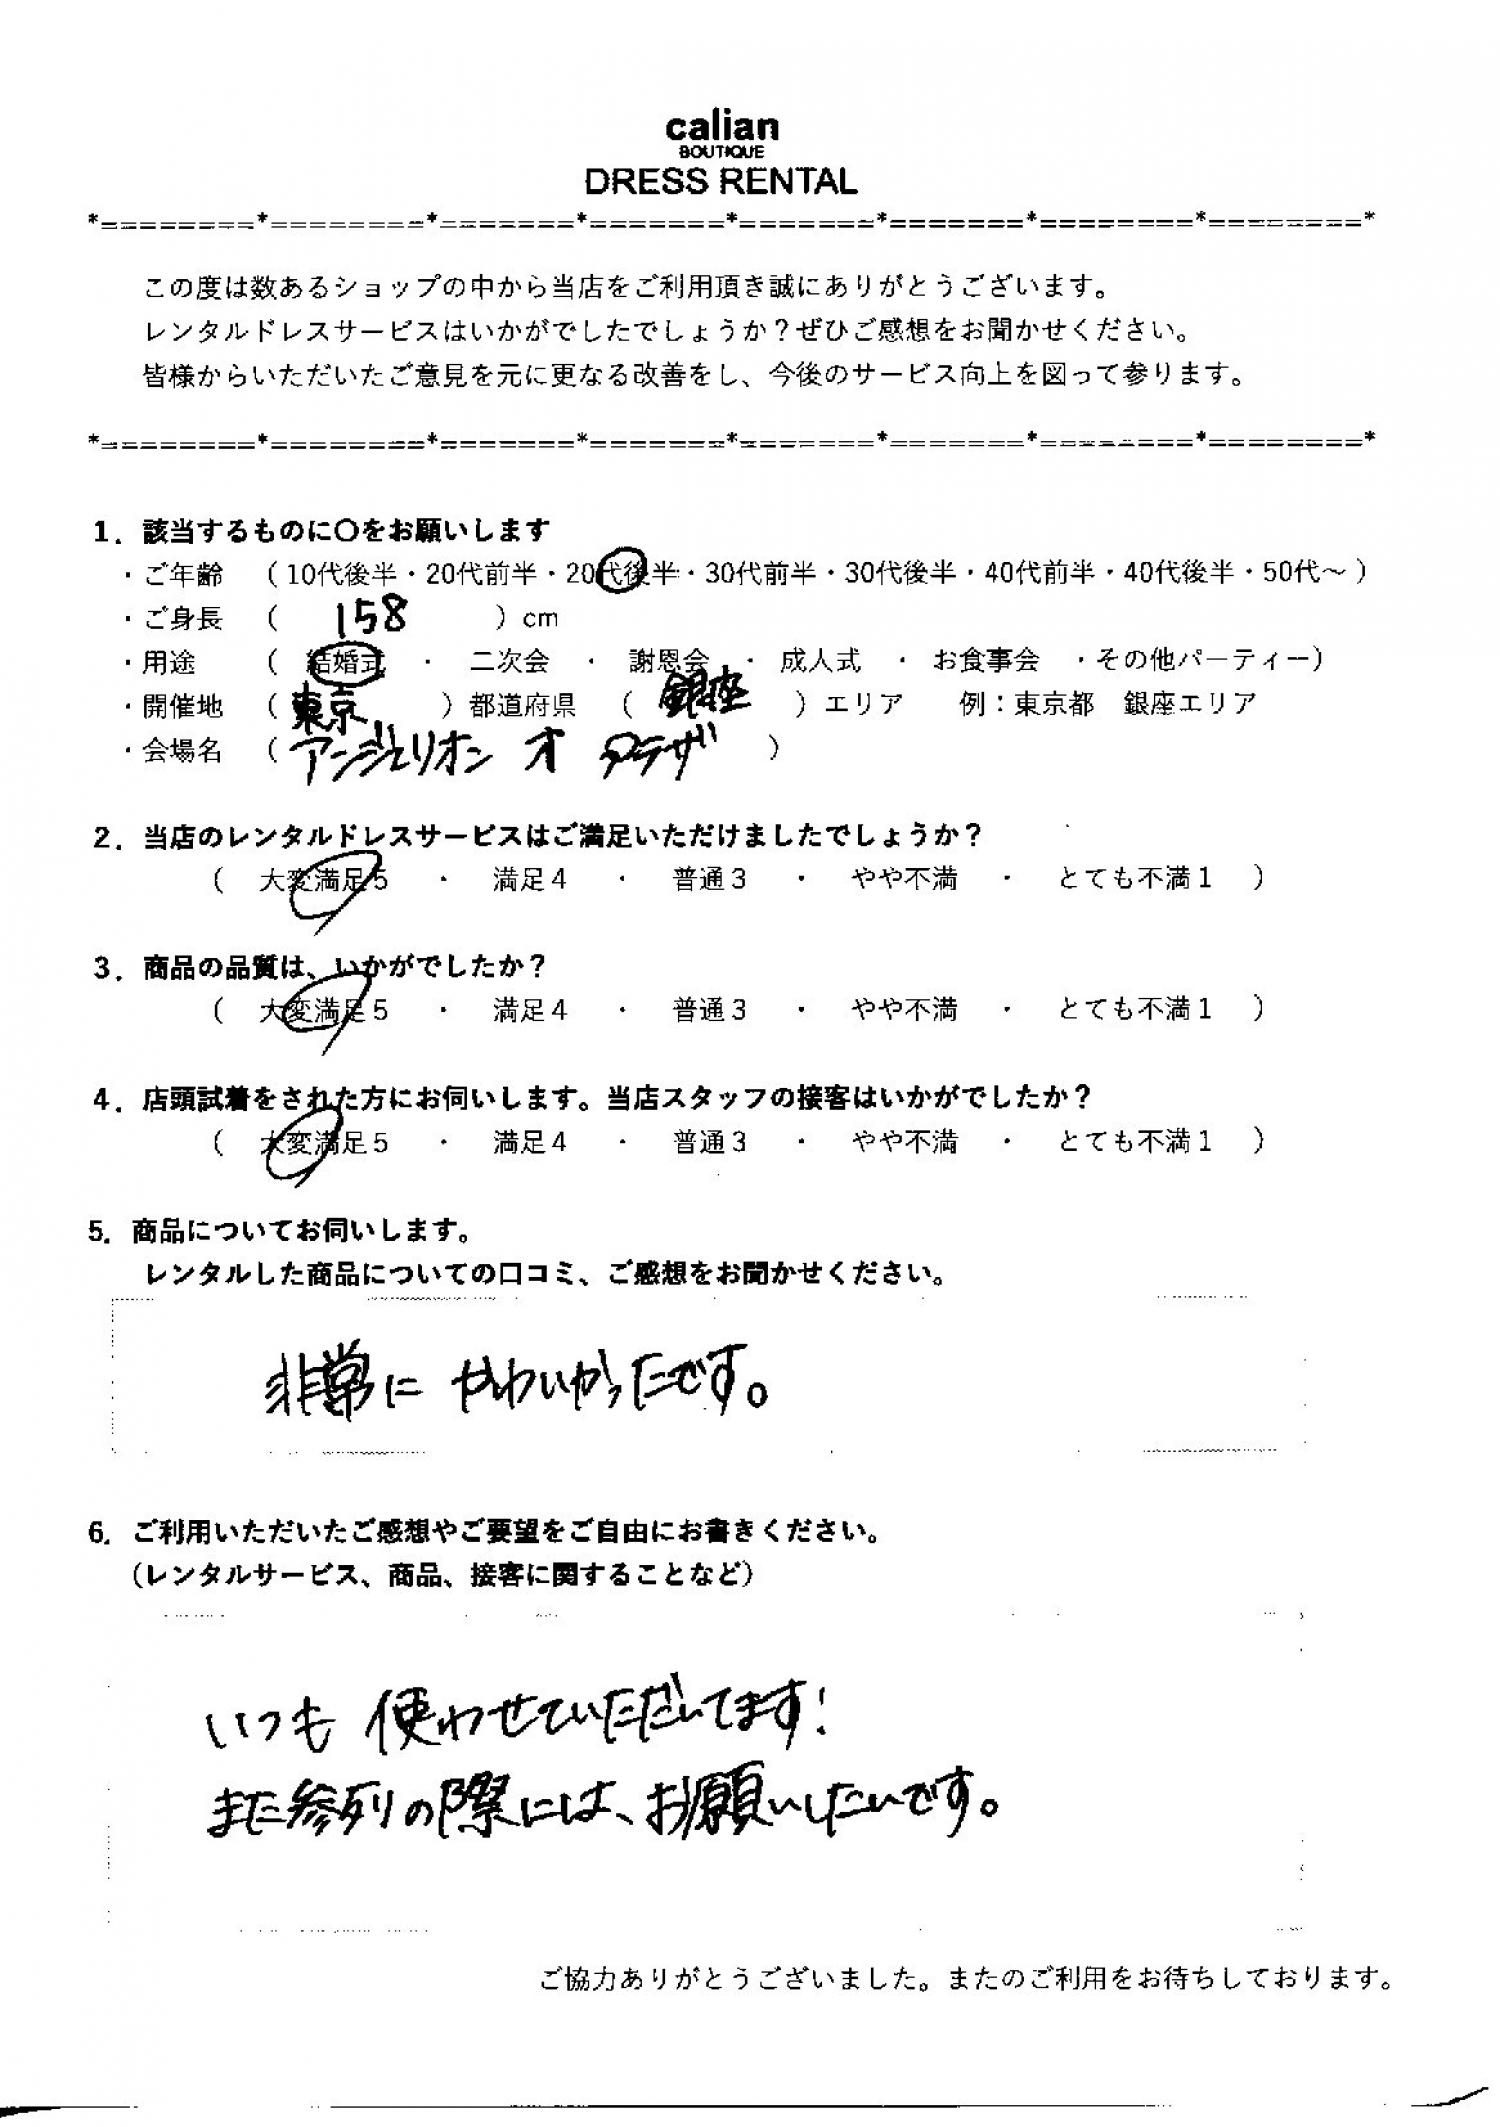 calian
BOUTIQUE
DRESS RENTAL
*========*========*=======*=======*=======*=======*========*========*
この度は数あるショップの中から当店をご利用頂き誠にありがとうございます。
レンタルドレスサービスはいかがでしたでしょうか？ぜひご感想をお聞かせください。
皆様からいただいたご意見を元に更なる改善をし、今後のサービス向上を図って参ります。
*========*========*=======*=======*=======*=======*========*========*
1．該当するものに〇をお願いします
・ご年齢 （10代後半・20代前半・20代後半・30代前半・30代後半・40代前半・40代後半・50代～）
・ご身長 （ 158 ）cm
・用途 （ 結婚式 ・ 二次会 ・ 謝恩会 ・ 成人式 ・ お食事会 ・その他パーティー）
・開催地 （ 東京 ）都道府県 （ 銀座 ）エリア 例：東京都 銀座エリア
・会場名 （ アンジェリオン オ プラザ ）
2．当店のレンタルドレスサービスはご満足いただけましたでしょうか？
（ 大変満足5 ・ 満足4 ・ 普通3 ・ やや不満 ・ とても不満1 ）
3．商品の品質は、いかがでしたか？
（ 大変満足5 ・ 満足4 ・ 普通3 ・ やや不満 ・ とても不満1 ）
4．店頭試着をされた方にお伺いします。当店スタッフの接客はいかがでしたか？
（ 大変満足5 ・ 満足4 ・ 普通3 ・ やや不満 ・ とても不満1 ）
5．商品についてお伺いします。
レンタルした商品についての口コミ、ご感想をお聞かせください。
非常に かわいかったです。
6．ご利用いただいたご感想やご要望をご自由にお書きください。
（レンタルサービス、商品、接客に関することなど）
いつも 使わせていただいてます！
また参列の際には、お願いしたいです。
ご協力ありがとうございました。またのご利用をお待ちしております。